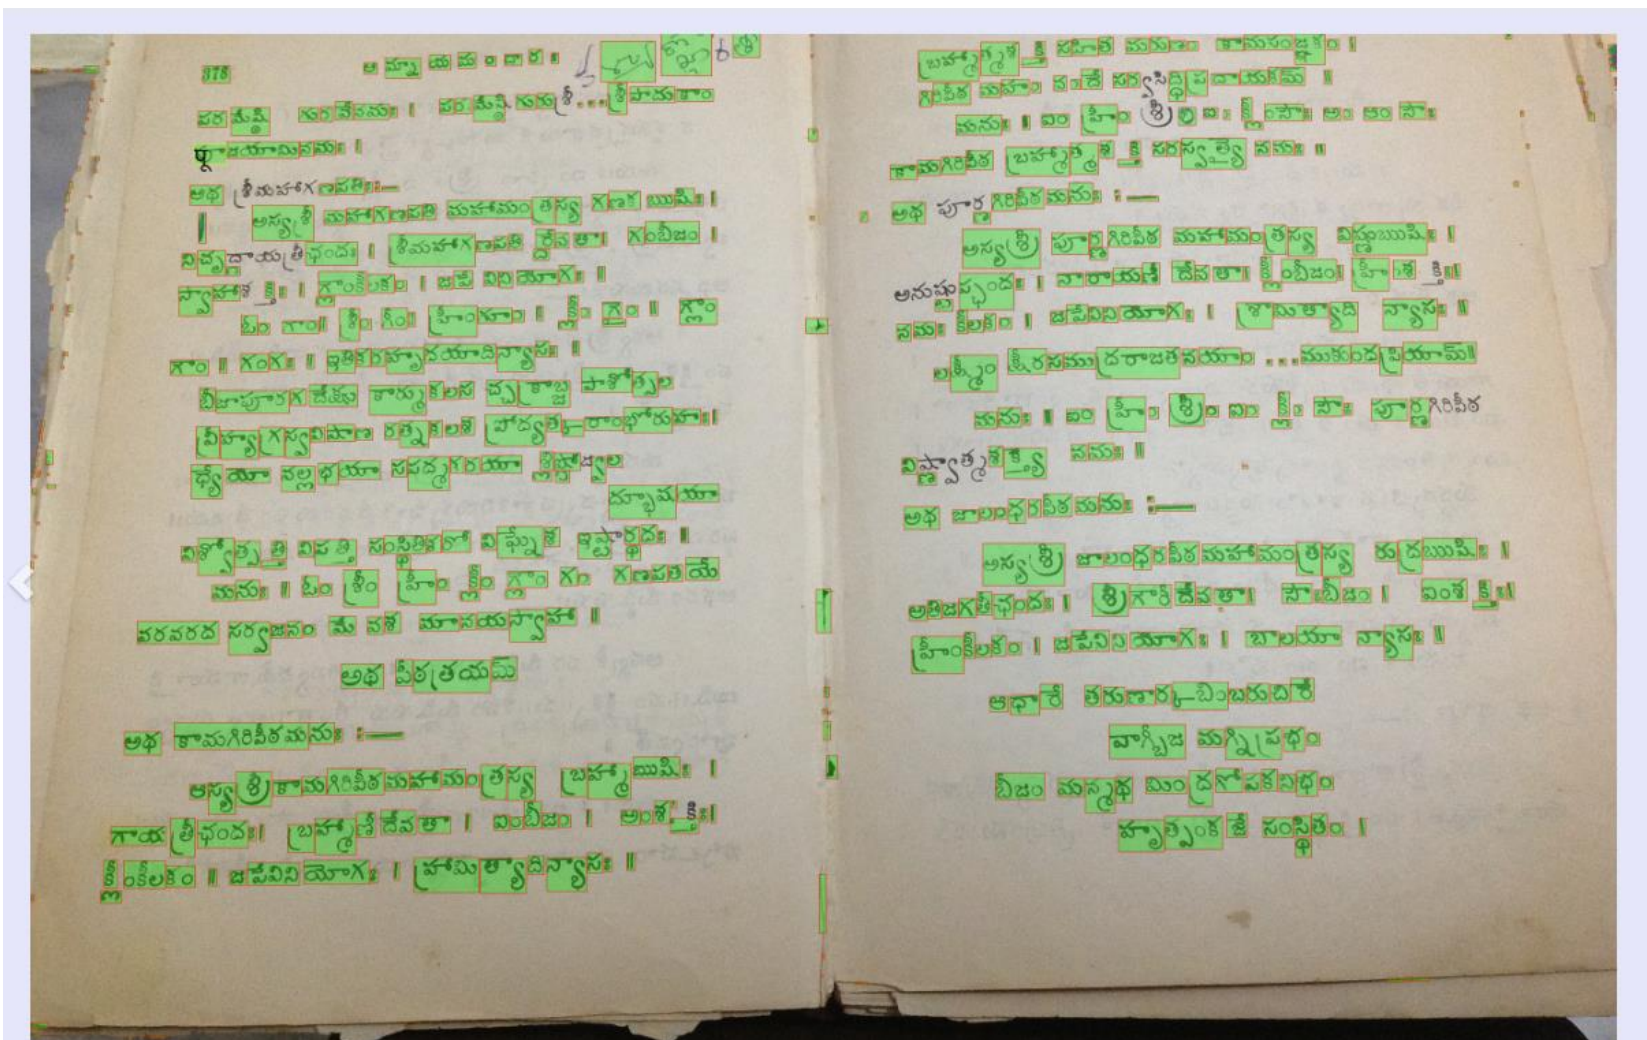 378 ఆమ్నాయమందారః
పరమేష్ఠి గురవేనమః। పరమేష్ఠి గురుశ్రీ...శ్రీపాదుకాం
పూజయామినమః।
అథ శ్రీమహాగణపతిః:—
అస్యశ్రీ మహాగణపతి మహామంత్రస్య గణక ఋషిః।
నిచృద్గాయత్రీఛందః। శ్రీమహాగణపతి ర్దేవతా। గంబీజం।
స్వాహాశక్తిః। గ్లాంకీలకం। జపే వినియోగః॥
ఓం గాం॥ శ్రీం గీం॥ హ్రీంగూం॥ క్లీం గైం॥ గ్లౌం
గౌం॥ గంగః॥ ఇతికరహృదయాదిన్యాసః॥
బీజాపూరగదేక్షు కార్ముకలస చ్చక్రాబ్జ పాశోత్పల
వ్రీహ్యగ్రస్వవిషాణ రత్నకలశ ప్రోద్యత్కరాంభోరుహః।
ధ్యేయో వల్లభయా సపద్మకరయా శ్లిష్టోజ్వల
ద్భూషయా
విశ్వోత్పత్తి విపత్తి సంస్థితికరో విఘ్నేశ ఇష్టార్థదః॥
మనుః॥ ఓం శ్రీం హ్రీం క్లీం గ్లౌం గం గణపతయే
వరవరద సర్వజనం మే వశ మానయస్వాహా॥
అథ పీఠత్రయమ్
అథ కామగిరిపీఠమనుః :—
అస్యశ్రీకామగిరిపీఠమహామంత్రస్య బ్రహ్మాఋషిః।
గాయత్రీఛందః। బ్రహ్మాణీదేవతా। ఐంబీజం। అంశక్తిః।
క్లీంకీలకం॥ జపేవినియోగః। హ్రామిత్యాదిన్యాసః॥
బ్రహ్మాత్మశక్తి సహిత మరుణం కామసంజ్ఞకం।
గిరిపీఠ మహం వందే సర్వసిద్ధిప్రదాయకమ్॥
మనుః॥ ఐం హ్రీం శ్రీం ఐం క్లీం సౌః అం ఆం సౌః
కామగిరిపీఠ బ్రహ్మాత్మశక్తి సరస్వత్యై నమః॥
అథ పూర్ణగిరిపీఠమనుః :—
అస్యశ్రీ పూర్ణగిరిపీఠ మహామంత్రస్య విష్ణుఋషిః।
అనుష్టుప్ఛందః। నారాయణీ దేవతా। క్లీంబీజం। హ్రీంశక్తిః।
నమః కీలకం। జపేవినియోగః। శ్రామిత్యాది న్యాసః॥
లక్ష్మీం క్షీరసముద్రరాజతనయాం ...ముకుందప్రియామ్॥
మనుః॥ ఐం హ్రీం శ్రీం ఐం క్లీం సౌః పూర్ణగిరిపీఠ
విష్ణ్వాత్మశక్త్యై నమః॥
అథ జాలంధరపీఠమనుః :—
అస్యశ్రీ జాలంధరపీఠమహామంత్రస్య రుద్రఋషిః।
అతిజగతీఛందః। శ్రీగౌరీదేవతా। సౌఃబీజం। ఐంశక్తిః।
హ్రీంకీలకం। జపేవినియోగః। బాలయా న్యాసః॥
ఆధారే తరుణార్కబింబరుచిరే
వాగ్బీజ మగ్నిప్రభం
బీజం మన్మథ మింద్రగోపకనిభం
హృత్పంకజే సంస్థితం।